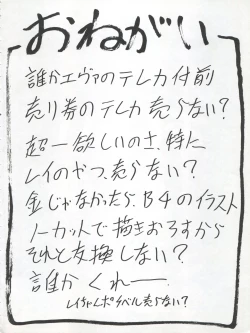 おねがい
誰かエヴァのテレカ付前
売り券のテレカ売らない?
超一欲しいのさ、特に
レイのやつ、売らない?
金じゃなかったら、B4のイラスト
ノーカットで描きおろすから
それと交換しない?
誰かくれー